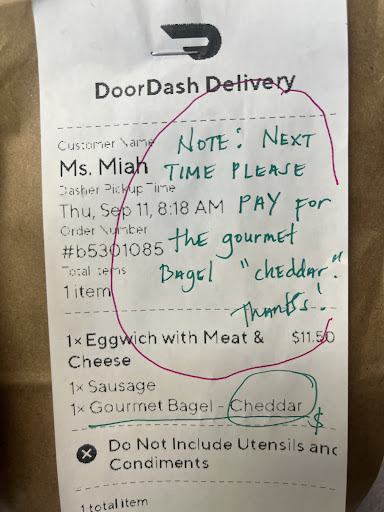 DoorDash Delivery
Customer Name
Ms. Miah
Dasher Pickup Time
Thu, Sep 11, 8:18 AM
Order Number
#b5301085
Total Items
1 item
NOTE: NEXT
TIME PLEASE
PAY for
the gourmet
BAGEL "cheddar."
THANKS!
1× Eggwich with Meat & $11.50
Cheese
1× Sausage
1× Gourmet Bagel - Cheddar
$
Do Not Include Utensils and
Condiments
1 total item